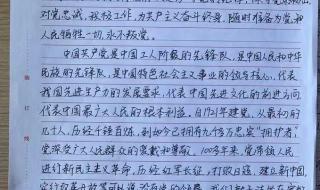 对党忠诚，积极工作，为共产主义奋斗终身，随时准备为党和
人民牺牲一切，永不叛党。
中国共产党是中国工人阶级的先锋队，是中国人民和中华
民族的先锋队，是中国特色社会主义事业的领导核心，代表
我国先进生产力的发展要求，代表中国先进文化的前进方向
代表中国最广大人民的根本利益。自1921年建党，从最初的
几十人，历经千锤百炼，到如今已拥有九千多万忠实"拥护者"，
党深受广大人民群众的爱戴和尊敬。100多年来，党带领人民
进行新民主主义革命，历经红军长征，打败日寇，建立新中国，